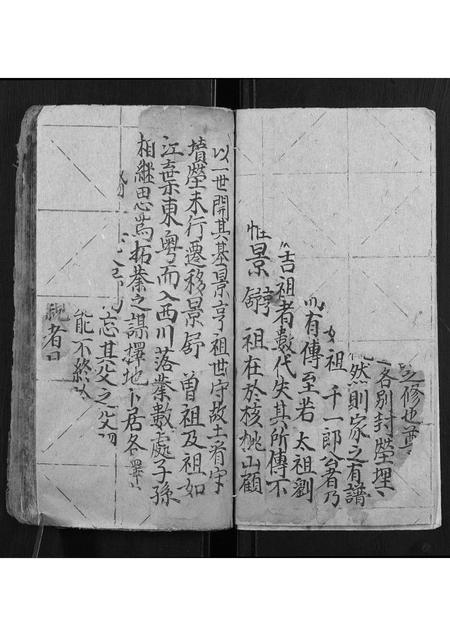 修也尊
各別封塋埋
然則家之有譜
祖千一郎公者乃
有傳至若 太祖劉
吉祖者數代失其所傳不
惟景舒祖在於核桃山顧
以一世開其基景亨祖世守故土看守
墳塋未行遷移景舒 曾祖及祖如
江 棄東粵而入西川落業數處子孫
相繼思為拓業之謀擇地卜居各
忘其父之父
能不終
者曰